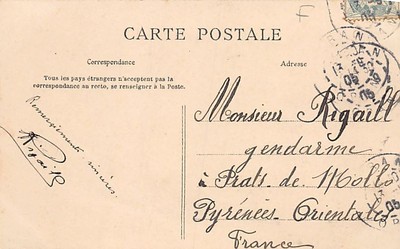 F
CARTE POSTALE
Correspondance
Adresse
Tous les pays étrangers n'acceptent pas la
correspondance au recto, se renseigner à la Poste.
Remerciements sincères.
Monsieur Rigaill
gendarme
à Prats de Mollo
Pyrénées Orientales
France
ORAN
05